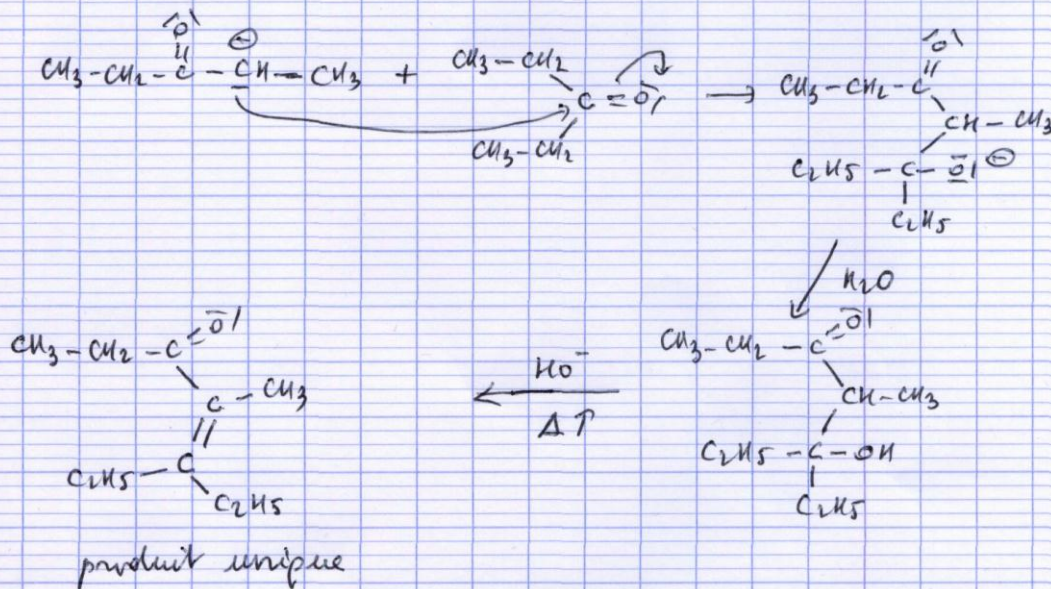 |O|
CH3-CH2-C-CH-CH3 + CH3-CH2 C=O| → CH3-CH2-C |O|
⊖
CH3-CH2
CH-CH3
C2H5-C-O| ⊖
C2H5
H2O
CH3-CH2-C=O|
CH-CH3
C2H5-C-OH
C2H5
HO⁻
Δ↑
CH3-CH2-C=O|
C-CH3
C2H5-C
C2H5
produit unique